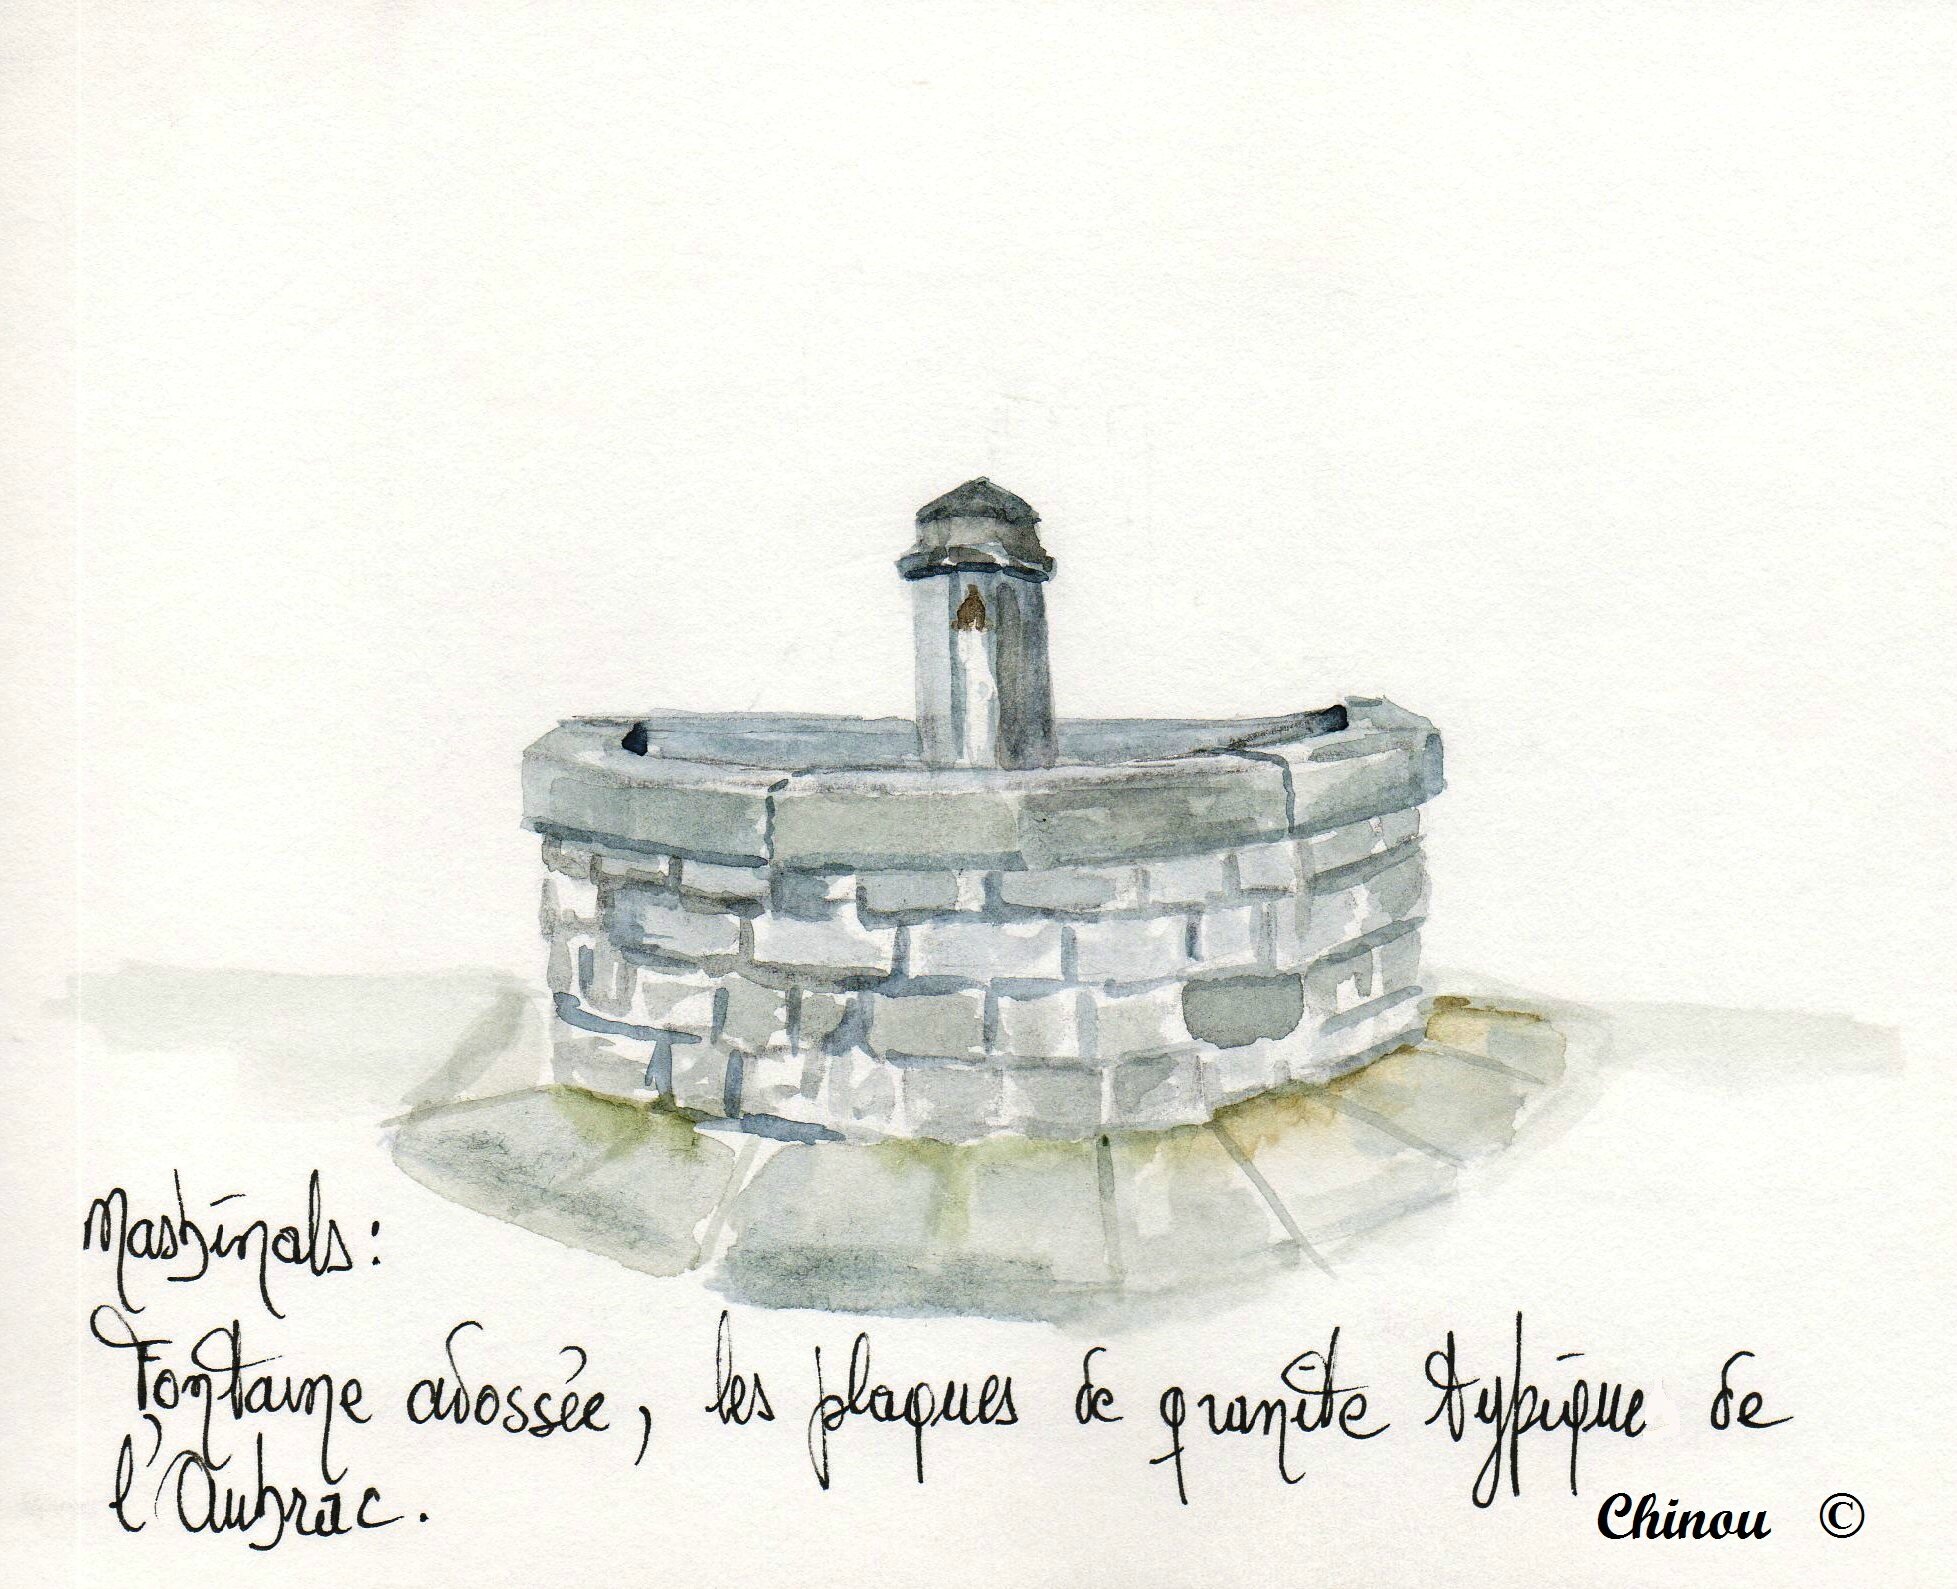 Nasbinals :
Fontaine adossée, les plaques de granite typique de
l'Aubrac.
Chinou ©